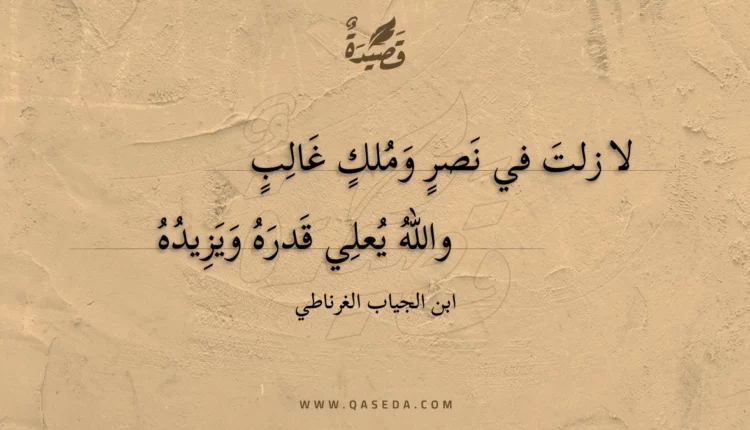 قَصِيدَةٌ
لا زلتَ في نَصرٍ وَمُلكٍ غَالِبٍ
واللهُ يُعلِي قَدرَهُ وَيَزِيدُهُ
ابن الجياب الغرناطي
WWW.QASEDA.COM